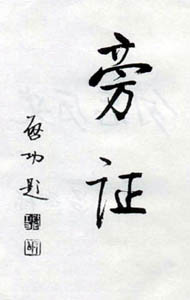 旁证
启功题